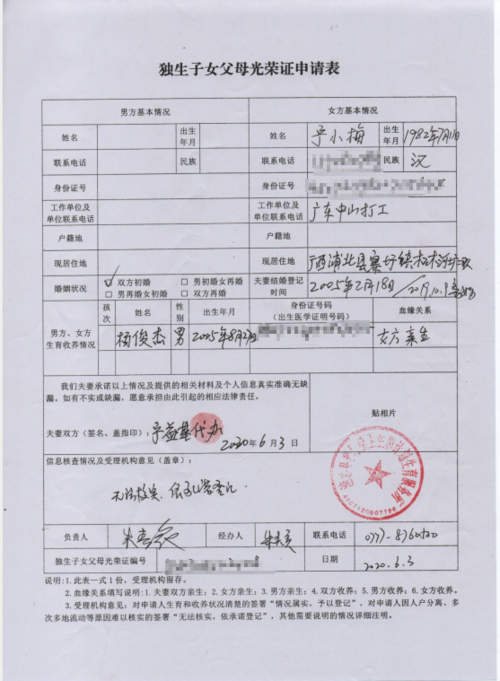 独生子女父母光荣证申请表
男方基本情况 女方基本情况
姓名 出生年月 姓名 宁小梅 出生年月 1982年7月1日
联系电话 民族 联系电话 民族 汉
身份证号 身份证号
工作单位及单位联系电话 工作单位及单位联系电话 广东中山打工
户籍地 户籍地
现居住地 现居住地 广西浦北县寨圩镇
婚姻状况 √ 双方初婚 □ 男初婚女再婚 □ 男再婚女初婚 □ 双方再婚 夫妻结婚登记时间 2005年2月18日 / 2019.10.9
男方、女方生育收养情况 孩次 姓名 性别 出生年月 身份证号码(出生医学证明号码) 血缘关系
杨俊杰 男 2005年8月 女方亲生
我们夫妻承诺以上情况及提供的相关材料及个人信息真实准确无缺
漏。如有不实或缺漏,愿意承担由此引起的相应法律责任。
贴相片
夫妻双方(签名、盖指印): 宁益基代办
2020年6月3日
信息核查情况及受理机构意见(盖章):
无法核实,依承诺登记
负责人 经办人 联系电话 0777-8760200
独生子女父母光荣证编号 日期 2020.6.3
说明:1.此表一式1份,受理机构留存。
2.血缘关系填写说明:1.夫妻双方亲生;2.女方亲生;3.男方亲生;4.双方收养;5.男方收养;6.女方收养。
3.受理机构意见:对申请人生育和收养状况清楚的签署“情况属实,予以登记”,对申请人因人户分离、多
次多地流动等原因难以核实的签署“无法核实,依承诺登记”,其他需要说明的情况详细注明。